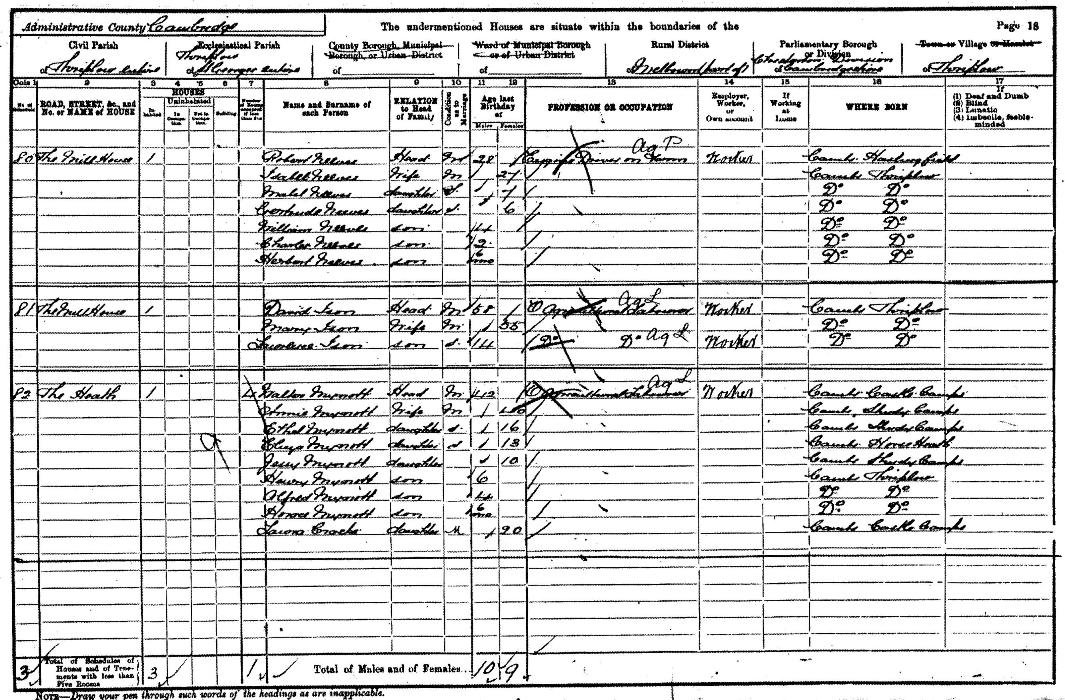 Administrative County Cambridge The undermentioned Houses are situate within the boundaries of the Page 18
Civil Parish Ecclesiastical Parish County Borough, Municipal Borough, or Urban District Ward of Municipal Borough or of Urban District Rural District Parliamentary Borough or Division Town or Village or Hamlet
of Thriplow entire of Thriplow St George entire of of of Melbourn part of of Chesterton Division Cambridgeshire of Thriplow
Cols 1 2 3 4 5 6 7 8 9 10 11 12 13 14 15 16 17
No. of Schedule ROAD, STREET, &c., and No. or NAME of HOUSE HOUSES Inhabited Uninhabited In Occupation Not in Occupation Building Name and Surname of each Person RELATION to Head of Family Condition as to Marriage Age last Birthday of Males Females PROFESSION OR OCCUPATION Employer, Worker, or Own account If Working at Home WHERE BORN If
(1) Deaf and Dumb
(2) Blind
(3) Lunatic
(4) Imbecile, feeble-minded
80 The Mill House 1 Robert Neeves Head M 28 Engine Driver on Farm Ag P Worker Cambs Haslingfield
Wife M 27 Cambs Thriplow
Mabel Neeves daughter S 7 Do Do
Gertrude Neeves daughter S 6 Do Do
William Neeves son 4 Do Do
Charles Neeves son 2 Do Do
Herbert Neeves son 6 mo Do Do
81 The Mill House 1 David Ison Head M 58 Agricultural Labourer Ag L Worker Cambs Thriplow
Mary Ison Wife M 55 Do Do
Lawrence Ison son S 14 Do Do Ag L Worker Do Do
82 The Heath 1 4 Walter Mynott Head M 42 Agricultural Labourer Ag L Worker Cambs Castle Camps
Annie Mynott Wife M 40 Cambs Shudy Camps
Ethel Mynott daughter S 16 Cambs Shudy Camps
Eliza Mynott daughter S 13 Cambs Horse Heath
Jessy Mynott daughter 10 Cambs Shudy Camps
Henry Mynott son 6 Cambs Thriplow
Alfred Mynott son 4 Do Do
Horace Mynott son 6 mo Do Do
Laura daughter M 20 Cambs Castle Camps
3 Total of Schedules of Houses and of Tenements with less than Five Rooms 3 1 Total of Males and of Females... 10 9
NOTE—Draw your pen through such words of the headings as are inapplicable.